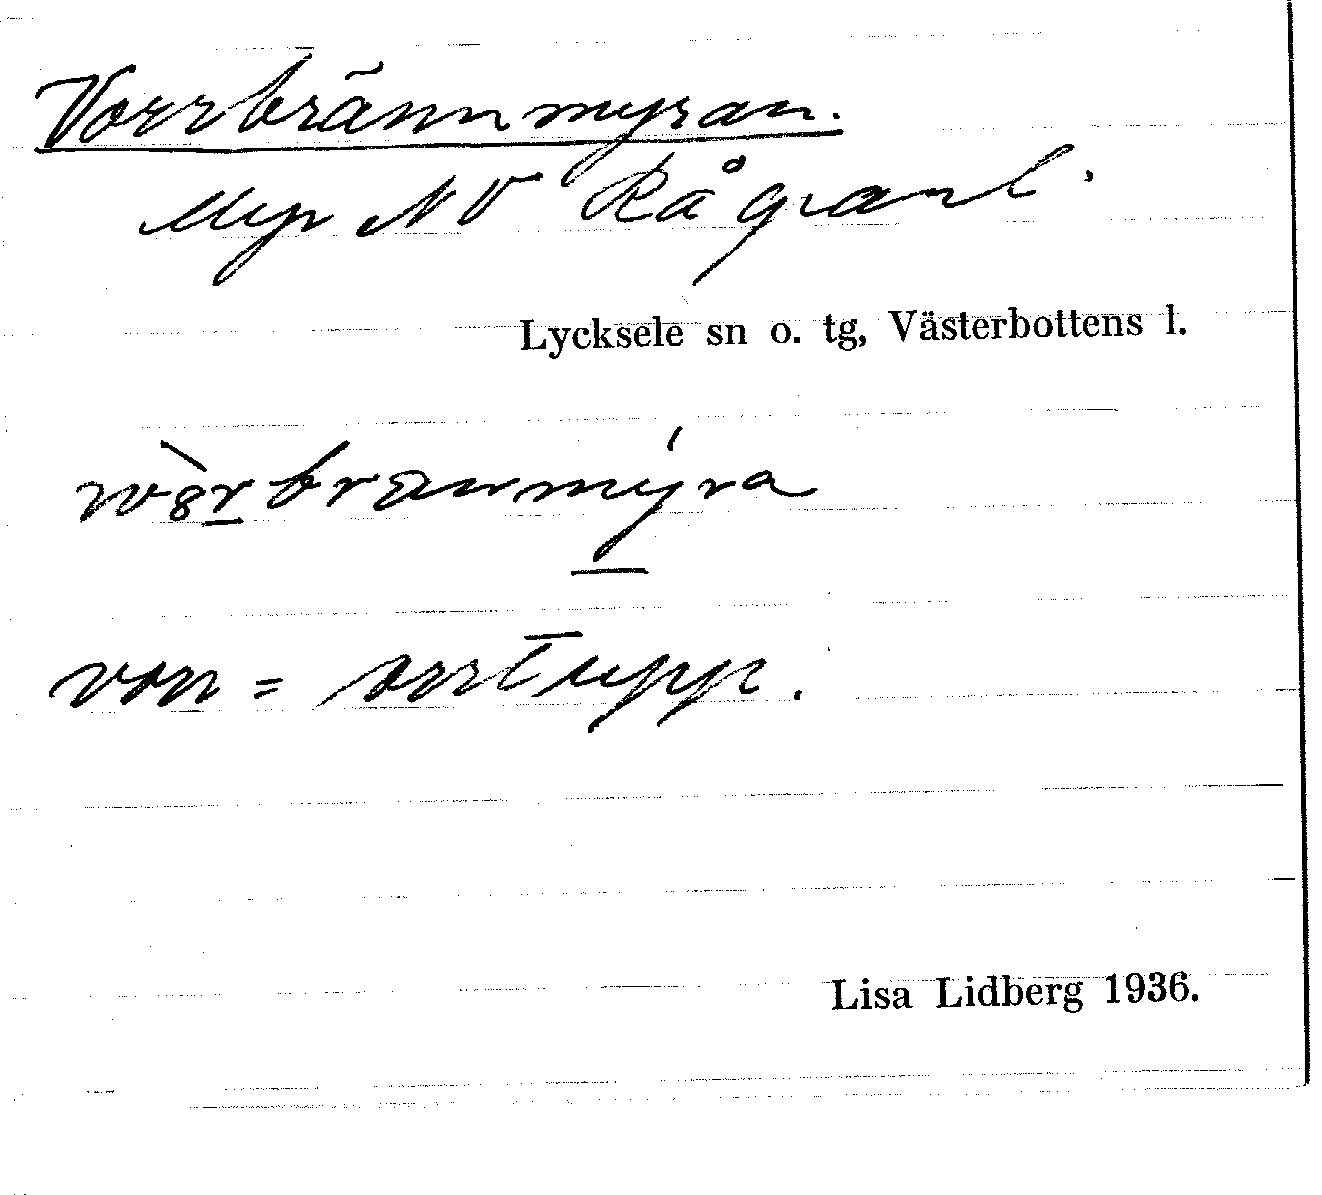 Vorrbrännmyran.
Myr NV Rågranl.
Lycksele sn o. tg, Västerbottens l.
vorr = orrtupp.
Lisa Lidberg 1936.